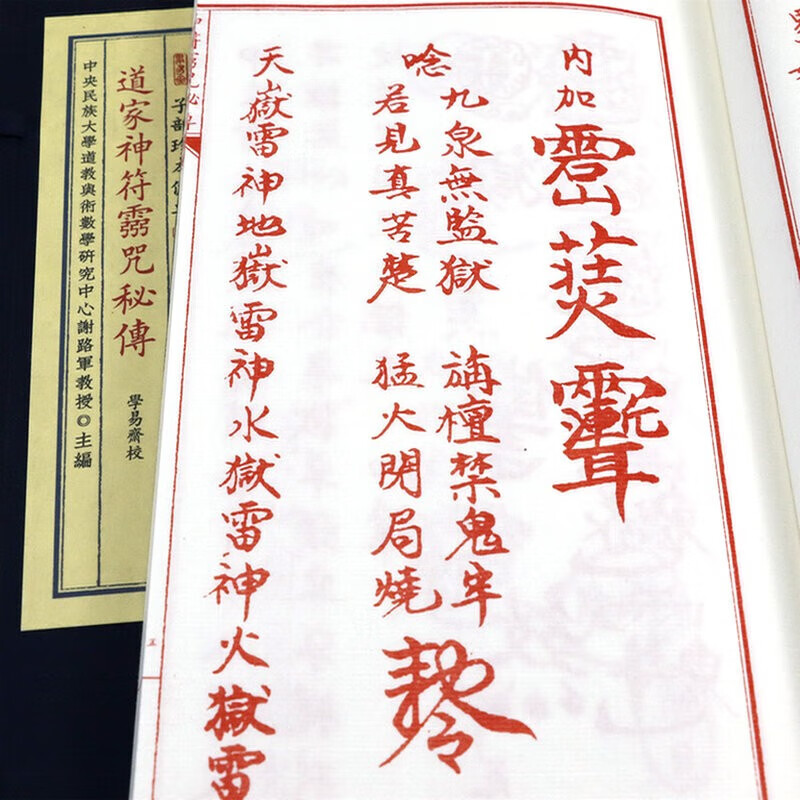 内加
唸
九泉無監獄 檀禁鬼牢
若見真苦楚 猛火局燒
天嶽雷神地嶽雷神水獄雷神火獄雷
子部珍本
道家神符霛咒秘傳
學易齋校
中央民族大學道教與術數學研究中心謝路軍教授◎主編